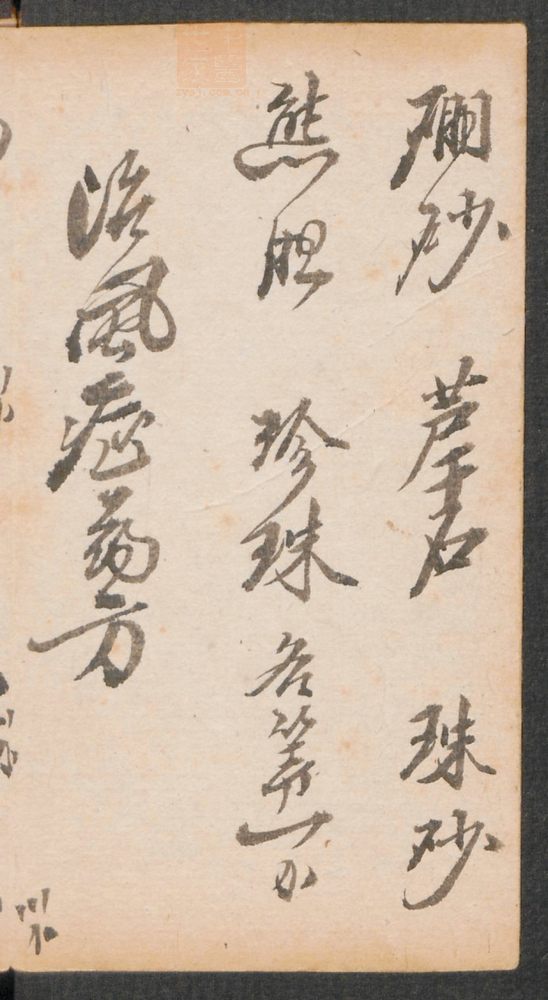 硼砂 芦干石 珠砂
熊胆 珍珠 各等一分
治風症药方